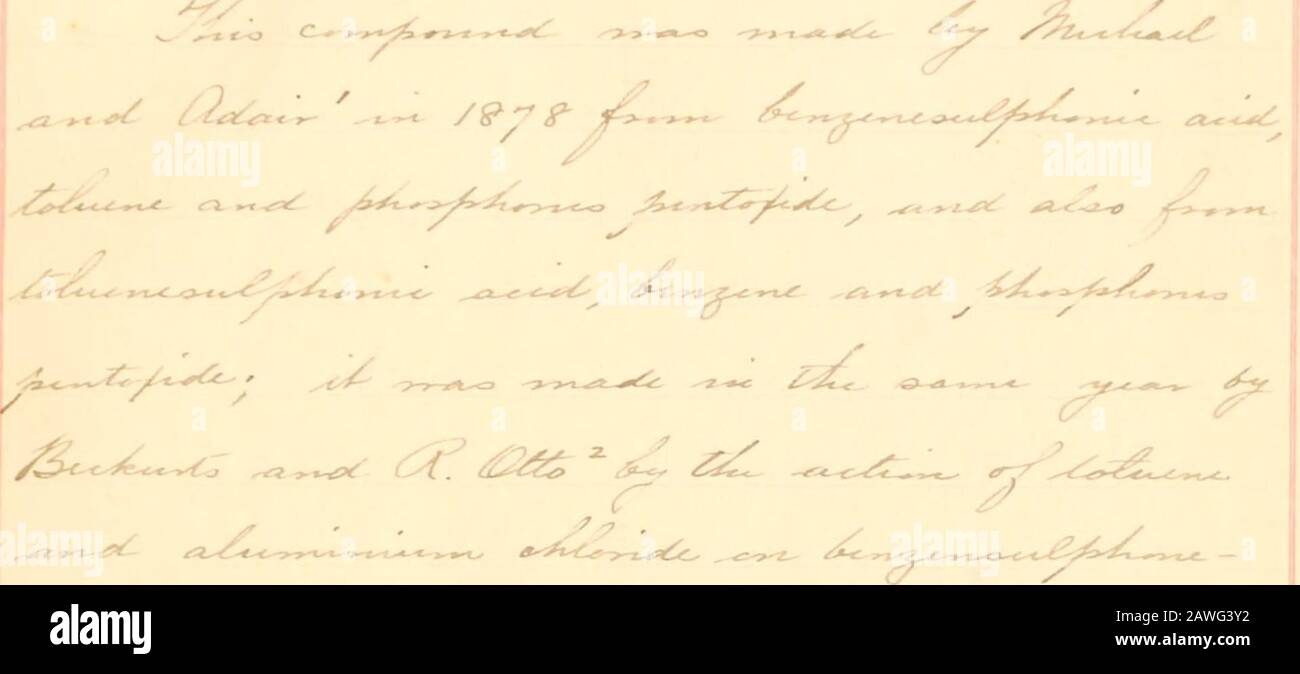 This compound was made by Michael
and Adair¹ in 1878 from benzenesulphonic acid,
toluene and phosphorus pentoxide, and also from
toluenesulphonic acid, benzene and phosphorus
pentoxide; it was made in the same year by
Beckurts and R. Otto² by the action of toluene
and aluminium chloride on benzenesulphone-
alamy
Image ID: 2AWG3Y2
www.alamy.com